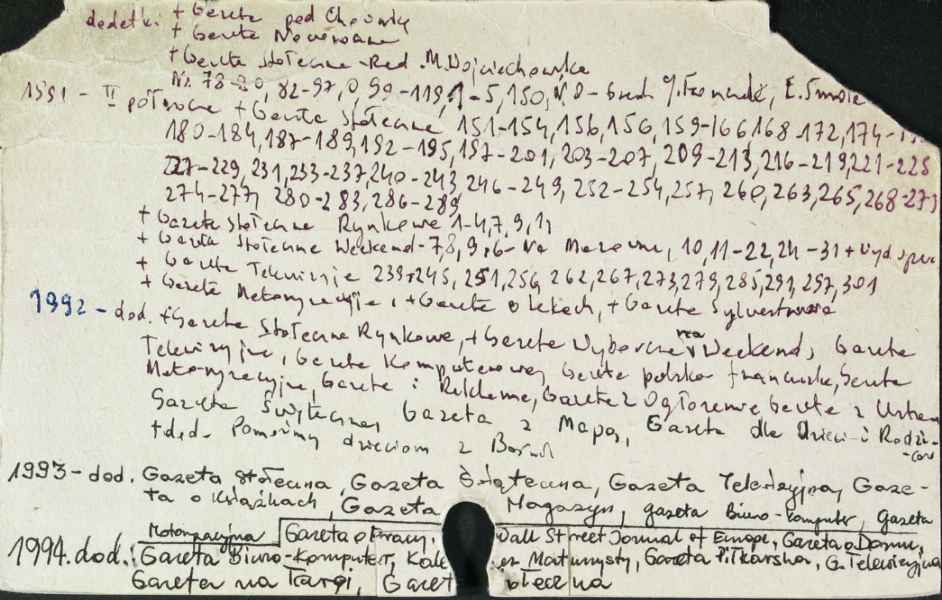 dodatki + Gazeta pod Choinkę
+ Gazeta Noworoczna
+ Gazeta Stołeczna - Red. M. Wojciechowska
Nr. 78-80, 82-97, 99-119, 1-5, 150, E. Smola
1991 - II półrocze + Gazeta Stołeczna 151-154, 156, 150, 159-166 168 172, 174-
180-184, 187-189, 192-195, 197-201, 203-207, 209-213, 216-219, 221-225
227-229, 231, 233-237, 240-243, 246-249, 252-254, 257, 260, 263, 265, 268-271
274-277, 280-283, 286-289
+ Gazeta Stołeczna Rynkowe 1-4, 7, 9, 11
+ Gazeta Stołeczna Weekend - 7, 8, 9, 10, 11-22, 24-31 + wyd
+ Gazeta Telewizyjna 239, 245, 251, 256, 262, 267, 273, 279, 285, 291, 297, 301
+ Gazeta Motoryzacyjna, + Gazeta o Lekach, + Gazeta Sylwestrowa
1992 - dod. + Gazeta Stołeczna Rynkowe, + Gazeta Wyborcza na Weekend, Gazeta
Telewizyjna, Gazeta Komputerowa, Gazeta polsko francuska, Gazeta
Motoryzacyjna, Gazeta i Reklama, Gazeta z Ogłoszenie Gazeta z
Gazeta Świąteczna, Gazeta z Mapą, Gazeta dla Dzieci i Rodzi-
-ców
+ dod. Pomóżmy dzieciom z Bośni
1993 - dod. Gazeta Stołeczna, Gazeta Świąteczna, Gazeta Telewizyjna, Gaze-
ta o Książkach, Gazeta Magazyn, gazeta Biuro-komputer, Gazeta
Motoryzacyjna Gazeta o Pracy, Wall Street Journal of Europe, Gazeta o Domu,
1994. dod.: Gazeta Biuro-Komputer, Maturzysty, Gazeta Piłkarska, G. Telewizyjna
Gazeta na Targi, Gazet ołeczna